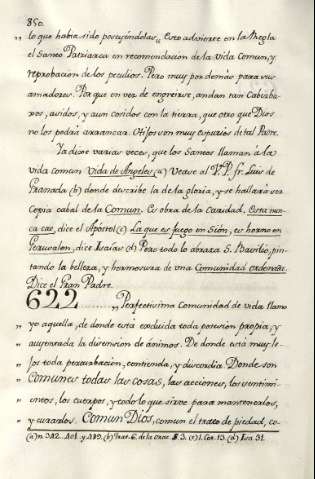 850.
„ lo que habia sido poseyéndolas„ Esto advierte en la Regla
el Santo Patriarca en recomendacion de la Vida Comun, y
reprobacion de los peculios. Pero muy por demás para sus
amadores. Porque en vez de engreirse, andan tan cabizba-
xos, asidos, y aun cosidos con la tierra, que otro que Dios
no los podrá arrancar. Hijos son muy espurios de tal Padre.
Ya dixe varias veces, que los Santos llaman á la
vida comun Vida de Angeles (a) Vease al V. P. fr. Luis de
Granada (b) donde describe la de la gloria, y se hallará ser
copia cabal de la Comun. Es obra de la caridad, Esta nun-
ca cae, dice el Apostol (c) La que es fuego en Sión, es horno en
Jerusalen, dice Isaías (d) Pero todo lo abraza S. Basilio, pin-
tando la belleza, y hermosura de una Comunidad ordenada.
Dice el Gran Padre.
622 „ Perfectisima Comunidad de vida llamo
„ yo aquella, de donde está excluida toda posesion propia, y
„ ahuyentada la disension de ánimos. De donde está muy le-
„ jos toda perturbacion, contienda, y discordia. Donde son
„ Comunes todas las cosas, las acciones, los sentimi-
„ entos, los cuerpos, y todo lo que sirve para mantenerlos,
„ y curarlos. Comun Dios, comun el trato de piedad, co-